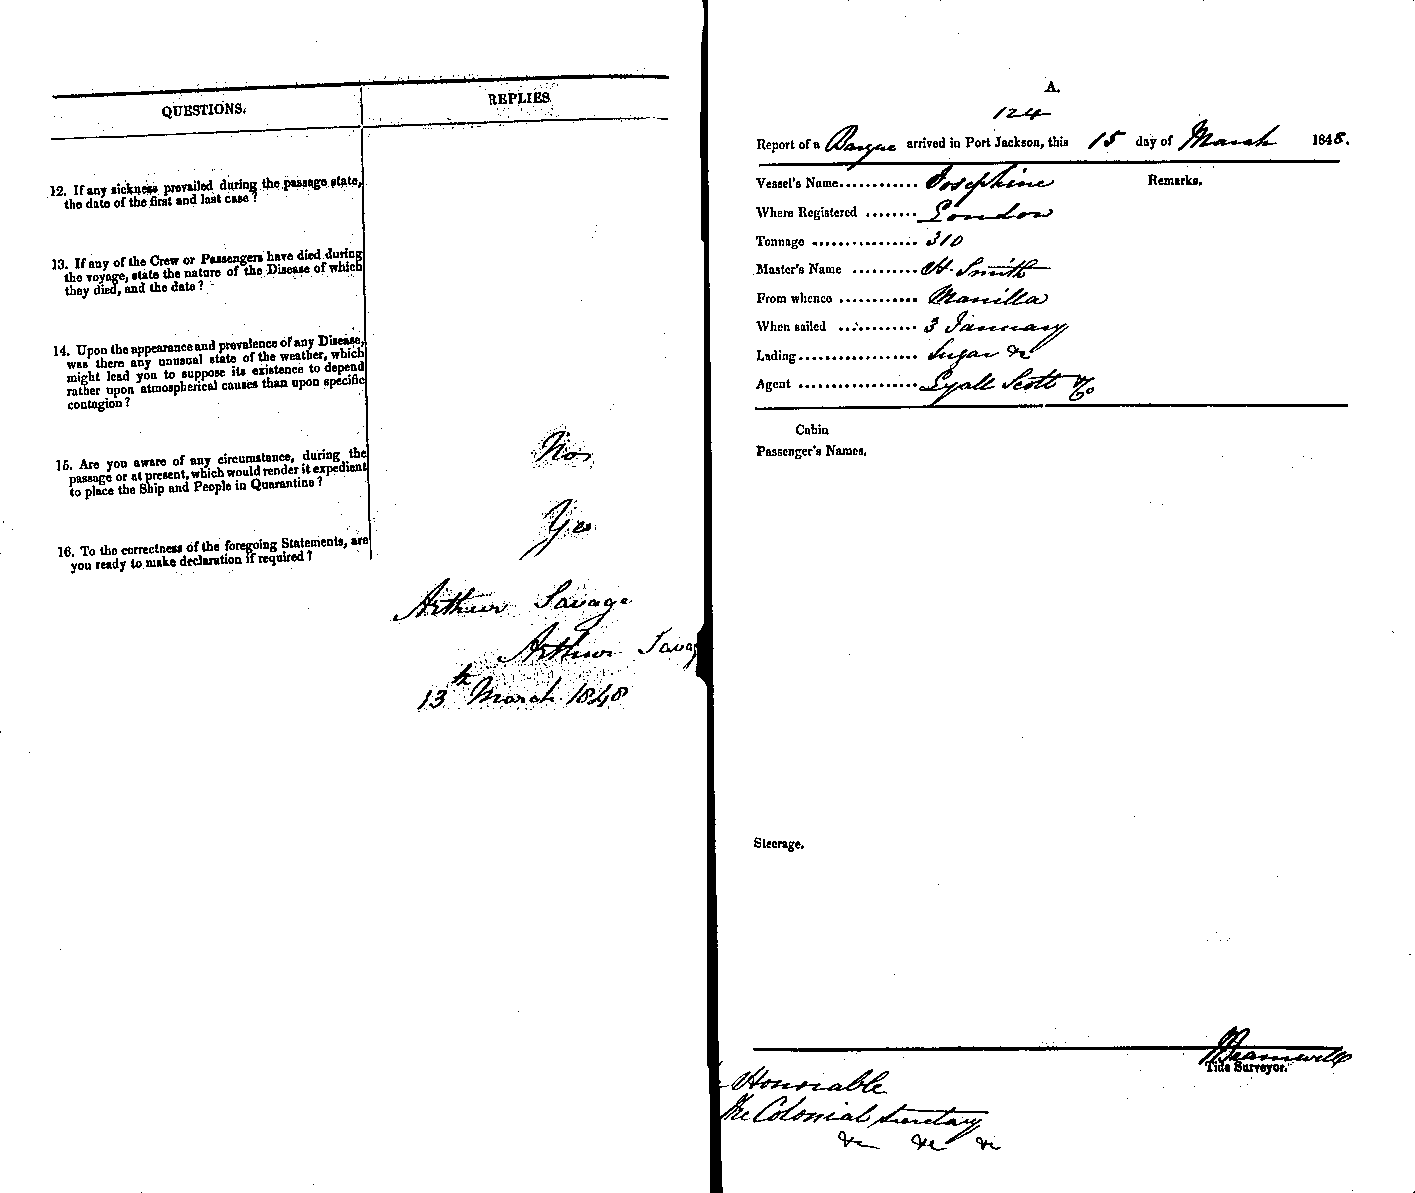 QUESTIONS.
REPLIES
12. If any sickness prevailed during the passage state,
the date of the first and last case?
13. If any of the Crew or Passengers have died during
the voyage, state the nature of the Disease of which
they died, and the date?
14. Upon the appearance and prevalence of any Disease,
was there any unusual state of the weather, which
might lead you to suppose its existence to depend
rather upon atmospherical causes than upon specific
contagion?
15. Are you aware of any circumstance, during the
passage or at present, which would render it expedient
to place the Ship and People in Quarantine?
No
16. To the correctness of the foregoing Statements, are
you ready to make declaration if required?
Yes
Arthur Savage
Arthur Savag
13th March 1848
A.
124
Report of a Barque arrived in Port Jackson, this 15 day of March 1848.
Vessel's Name............ Josephine
Remarks.
Where Registered ........ London
Tonnage ................ 310
Master's Name .......... H. Smith
From whence ............ Manilla
When sailed ............ 3 January
Lading.................. Sugar &c
Agent .................. Lyall Scott & Co
Cabin
Passenger's Names.
Steerage.
Bramwell
Tide Surveyor.
Honorable
The Colonial Secretary
&c &c &c